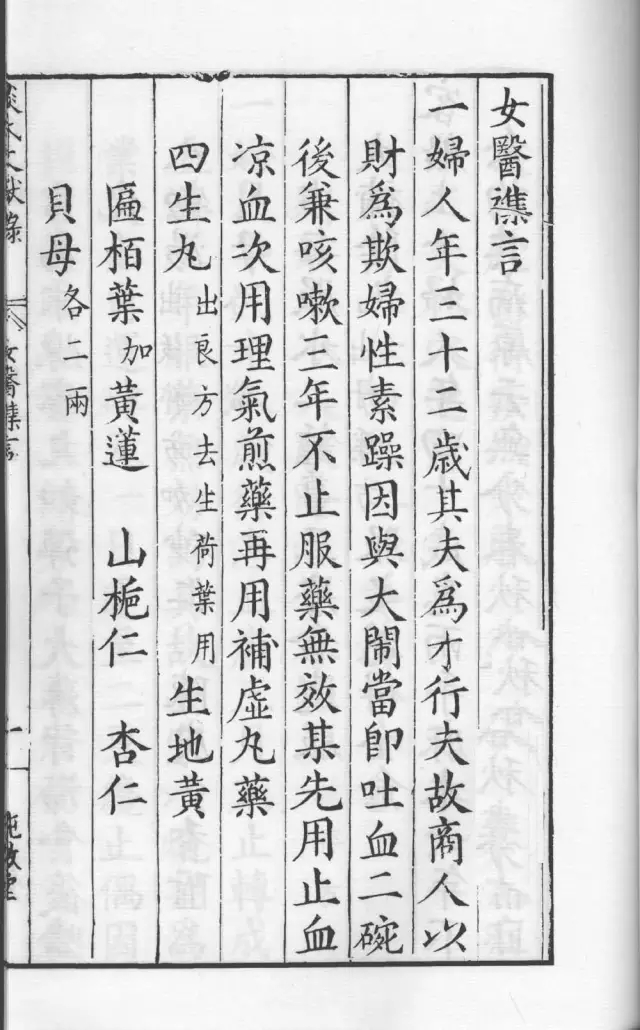 女醫襍言
一婦人年三十一歲其夫爲才行夫故商人以
財爲欺婦性素躁因與大鬧當卽吐血二碗
後兼咳嗽三年不止服藥無效某先用止血
凉血次用理氣煎藥再用補虛丸藥
四生丸出良方去生荷葉用生地黃
匾栢葉加黃蓮 山梔仁 杏仁
貝母各二兩